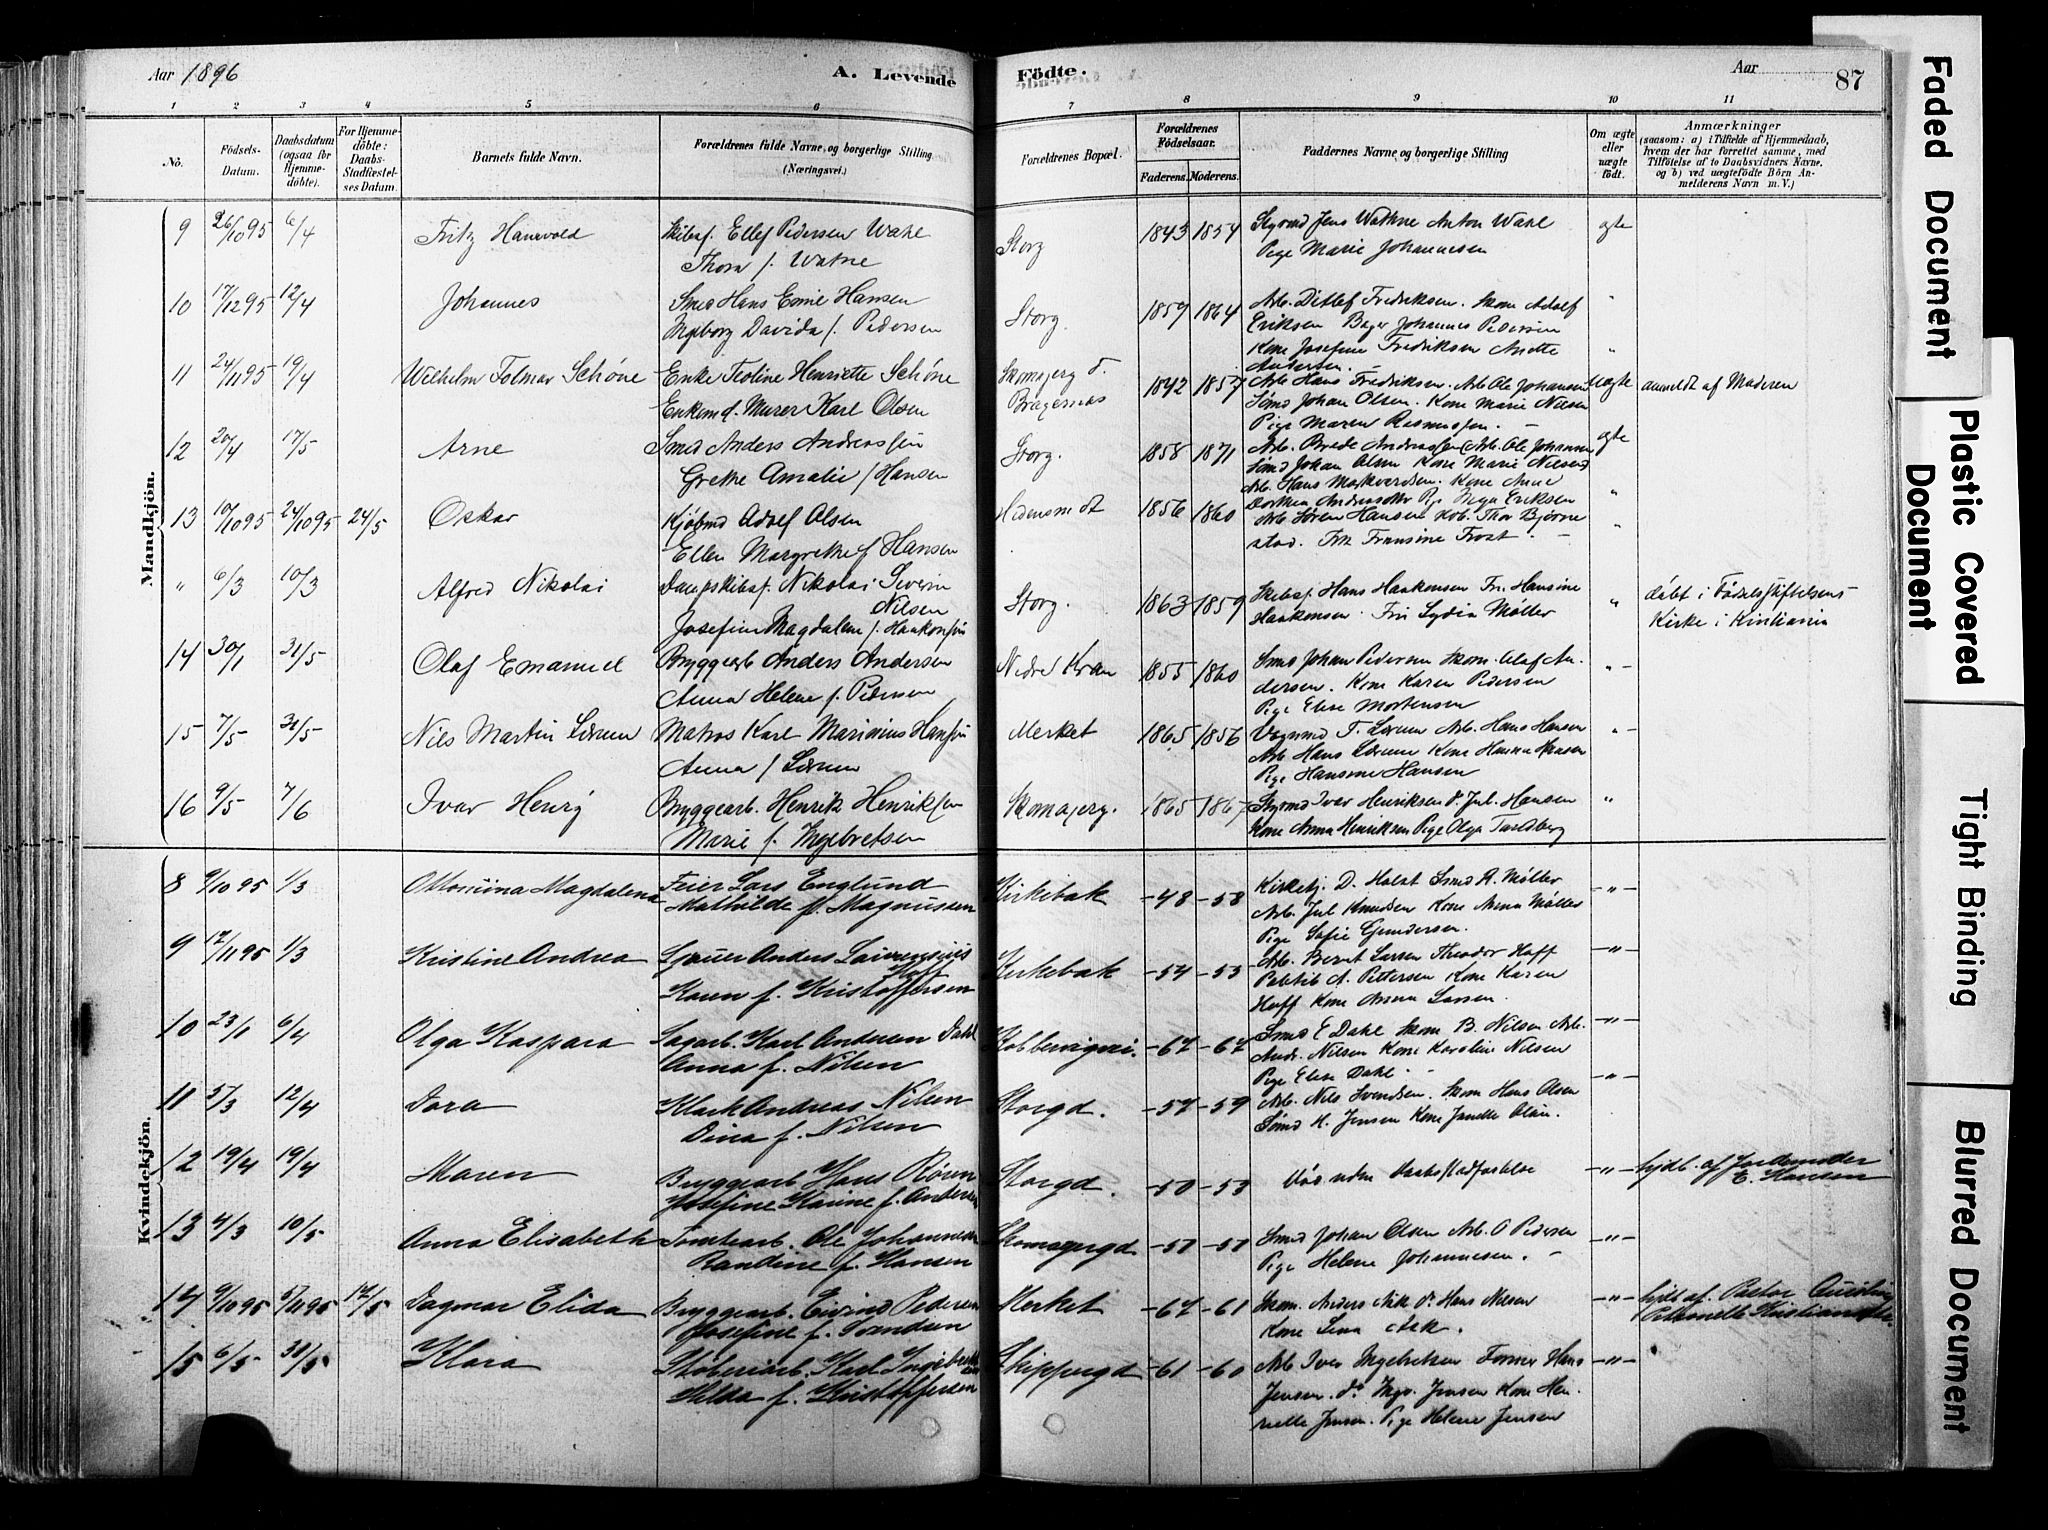 Aar 1896
A. Levende
Födte.
Aar
87
1 2 3 4 5 6 7 8 9 10 11
No.
Födsels-
Datum.
Daabsdatum
(ogsaa for
Hjemme-
döbte).
For Hjemme-
döbte:
Daabs-
Stadfæstel-
ses Datum.
Barnets fulde Navn.
Forældrenes fulde Navne, og borgerlige Stilling
(Næringsvei.)
Forældrenes Bopæl.
Forældrenes
Födselsaar.
Faderens. Moderens.
Faddernes Navne og borgerlige Stilling
Om ægte
eller
uægte
födt.
Anmærkninger
(saasom: a) i Tilfælde af Hjemmedaab,
hvem der har forrettet samme, med
Tilföielse af to Daabsvidners Navne,
og b) ved uægtefödte Börn An-
melderens Navn m. V.)
Mandkjön.
9 26/10 95 6/4 Fritz Hanevold Skibsf. Ellef Pedersen Wahl
Thora f. Watne
Storg 1843 1854
Styrmd Jens Wathne Anton Wahl
Pige Marie Johannesen
ægte
10 17/12 95 12/4 Johannes Smed Hans Emil Hansen
Ingeborg Davida f. Pedersen
Storg. 1859 1864
Arb. Ditlef Fredriksen. Skom Adolf
Eriksen Bager Johannes Pedersen
Kone Josefine Fredriksen Anette
Andersen. "
11 24/11 95 19/4 Wilhelm Folmar Schöne Enke Teoline Henriette Schöne
Enkemd. Murer Karl Olsen
Skomagerg d.
Bragernæs
1842 1857
Arb Hans Fredriksen. Arb Ole Johansen
Sömd Johan Olsen. Kone Marie Nilsen
Pige Maren Rasmussen.
Uægte anmeldt af Moderen
12 20/4 17/5 Arne Smed Anders Andreassen
Grethe Amalie f Hansen
Storg. 1858 1871
Arb. Brede Andreassen Arb. Ole Johansen
Sömd Johan Olsen Kone Marie Nilsen
ægte
13 10/10 95 24/10 95 24/5 Oskar Kjöbmd Adolf Olsen
Ellen Margrethe f Hansen
Hedensmdt 1856 1860
Arb. Hans Markvardsen. Kone Anne
Dorthea Andreasdtr Pige Inga Eriksen
Arb Sören Hansen Kob. Thor Bjørne
stad. Frk Fransine Frost. "
" 6/3 10/3 Alfred Nikolai Dampskibsf. Nikolai Severin
Nilsen
Josefine Magdalene f. Haakonsen
Storg. 1863 1859
Skibsf Hans Haakonsen Fr. Hansine
Haakonsen Fri Lydia Møller
" döbt i Födselsstiftelsens
Kirke i Kristiania
14 30/1 31/5 Olaf Emanuel Bryggearb Anders Andersen
Anna Helene f. Pedersen
Nedre Kran 1855 1860
Smed Johan Pedersen Skom. Olaf An-
dersen. Kone Karen Pedersen
Pige Elise Mortensen
"
15 7/5 31/5 Nils Martin Lörum Matros Karl Marinius Hansen
Anna f Lörum
Merket 1865 1856
Vognmd T. Lörum Arb. Hans Hansen
Arb Hans Lörum Kone Hanna Hansen
Pige Hansine Hansen
"
16 9/5 7/6 Ivar Henry Bryggearb. Henrik Henriksen
Marie f. Ingebretsen
Skomagerg. 1865 1867
Styrmd Ivar Henriksen d. Jul. Hansen
Kone Anna Henriksen Pige Olga Tandberg
"
Kvindekjön.
8 9/10 95 1/3 Ottomina Magdalena Feier Lars Englund
Mathilde f. Magnussen
Kirkebak -48 -58
Kirketj. D. Holst Smed R. Møller
Arb. Jul Knudsen Kone Anna Møller
Pige Sofie Gundersen.
-"-
9 12/11 95 1/3 Kristine Andrea Sjauer Anders Laurensius
Hoff
Karen f. Kristoffersen
Kirkebak -54 -53
Arb. Bernt Larsen Theodor Hoff
A. Pettersen Kone Karen
Hoff Kone Anna Larsen.
-"-
10 23/1 6/4 Olga Kaspara Sagarb. Karl Andersen Dahl
Anna f. Nilsen
Kobbervigvei. -67 -67
Smed E Dahl Skom B. Nilsen Arb.
Andr. Nilsen Kone Karoline Nilsen
Pige Elise Dahl.
-"-
11 5/3 12/4 Dora Klark Andreas Nilsen
Dina f. Nilsen
Storgd. -57 -59
Arb. Nils Svendsen. Skom Hans Olsen
Sömd K. Jensen Kone Janette Olsen.
-"-
12 19/4 19/4 Maren Bryggearb Hans Rören
Josefine Karine f. Andersen
Storgd. -50 -53
Död uden Daabsstadfæstelse
-"- hjdb. af Jordemoder
E. Hansen
13 4/3 10/5 Anna Elisabeth Tomtearb. Ole Johannesen
Randine f. Hansen
Skomagergd -57 -57
Smed Johan Olsen Arb. O Pedersen
Pige Helene Johannesen.
-"-
14 9/10 95 5/11 95 14/5 Dagmar Elida Bryggearb. Eivind Pedersen
Josefine f. Svendsen
Merket -67 -61
Skom. Anders Aak d. Hans Nilsen
Kone Lina Aak.
-"- hjdt af. Pastor Quisling
15 6/5 31/5 Klara Støberiarb. Karl Ingebretsen
Hilda f. Kristoffersen
Skippergd -61 -60
Arb Iver Ingebretsen Former Hans
Jensen. do Ingv. Jensen Kone Hen-
riette Jensen. Pige Helene Jensen
-"-
Faded Document
Plastic Covered
Document
Tight Binding
Blurred Document